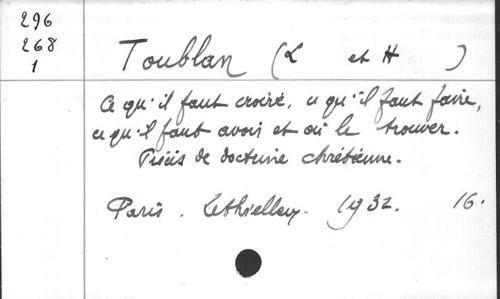 296
268
1
Toublan (L et H )
Ce qu'il faut croire, ce qu'il faut faire,
ce qu'il faut avoir et où le trouver.
Précis de doctrine chrétienne.
Paris. Lethielleux. 1932. 16.